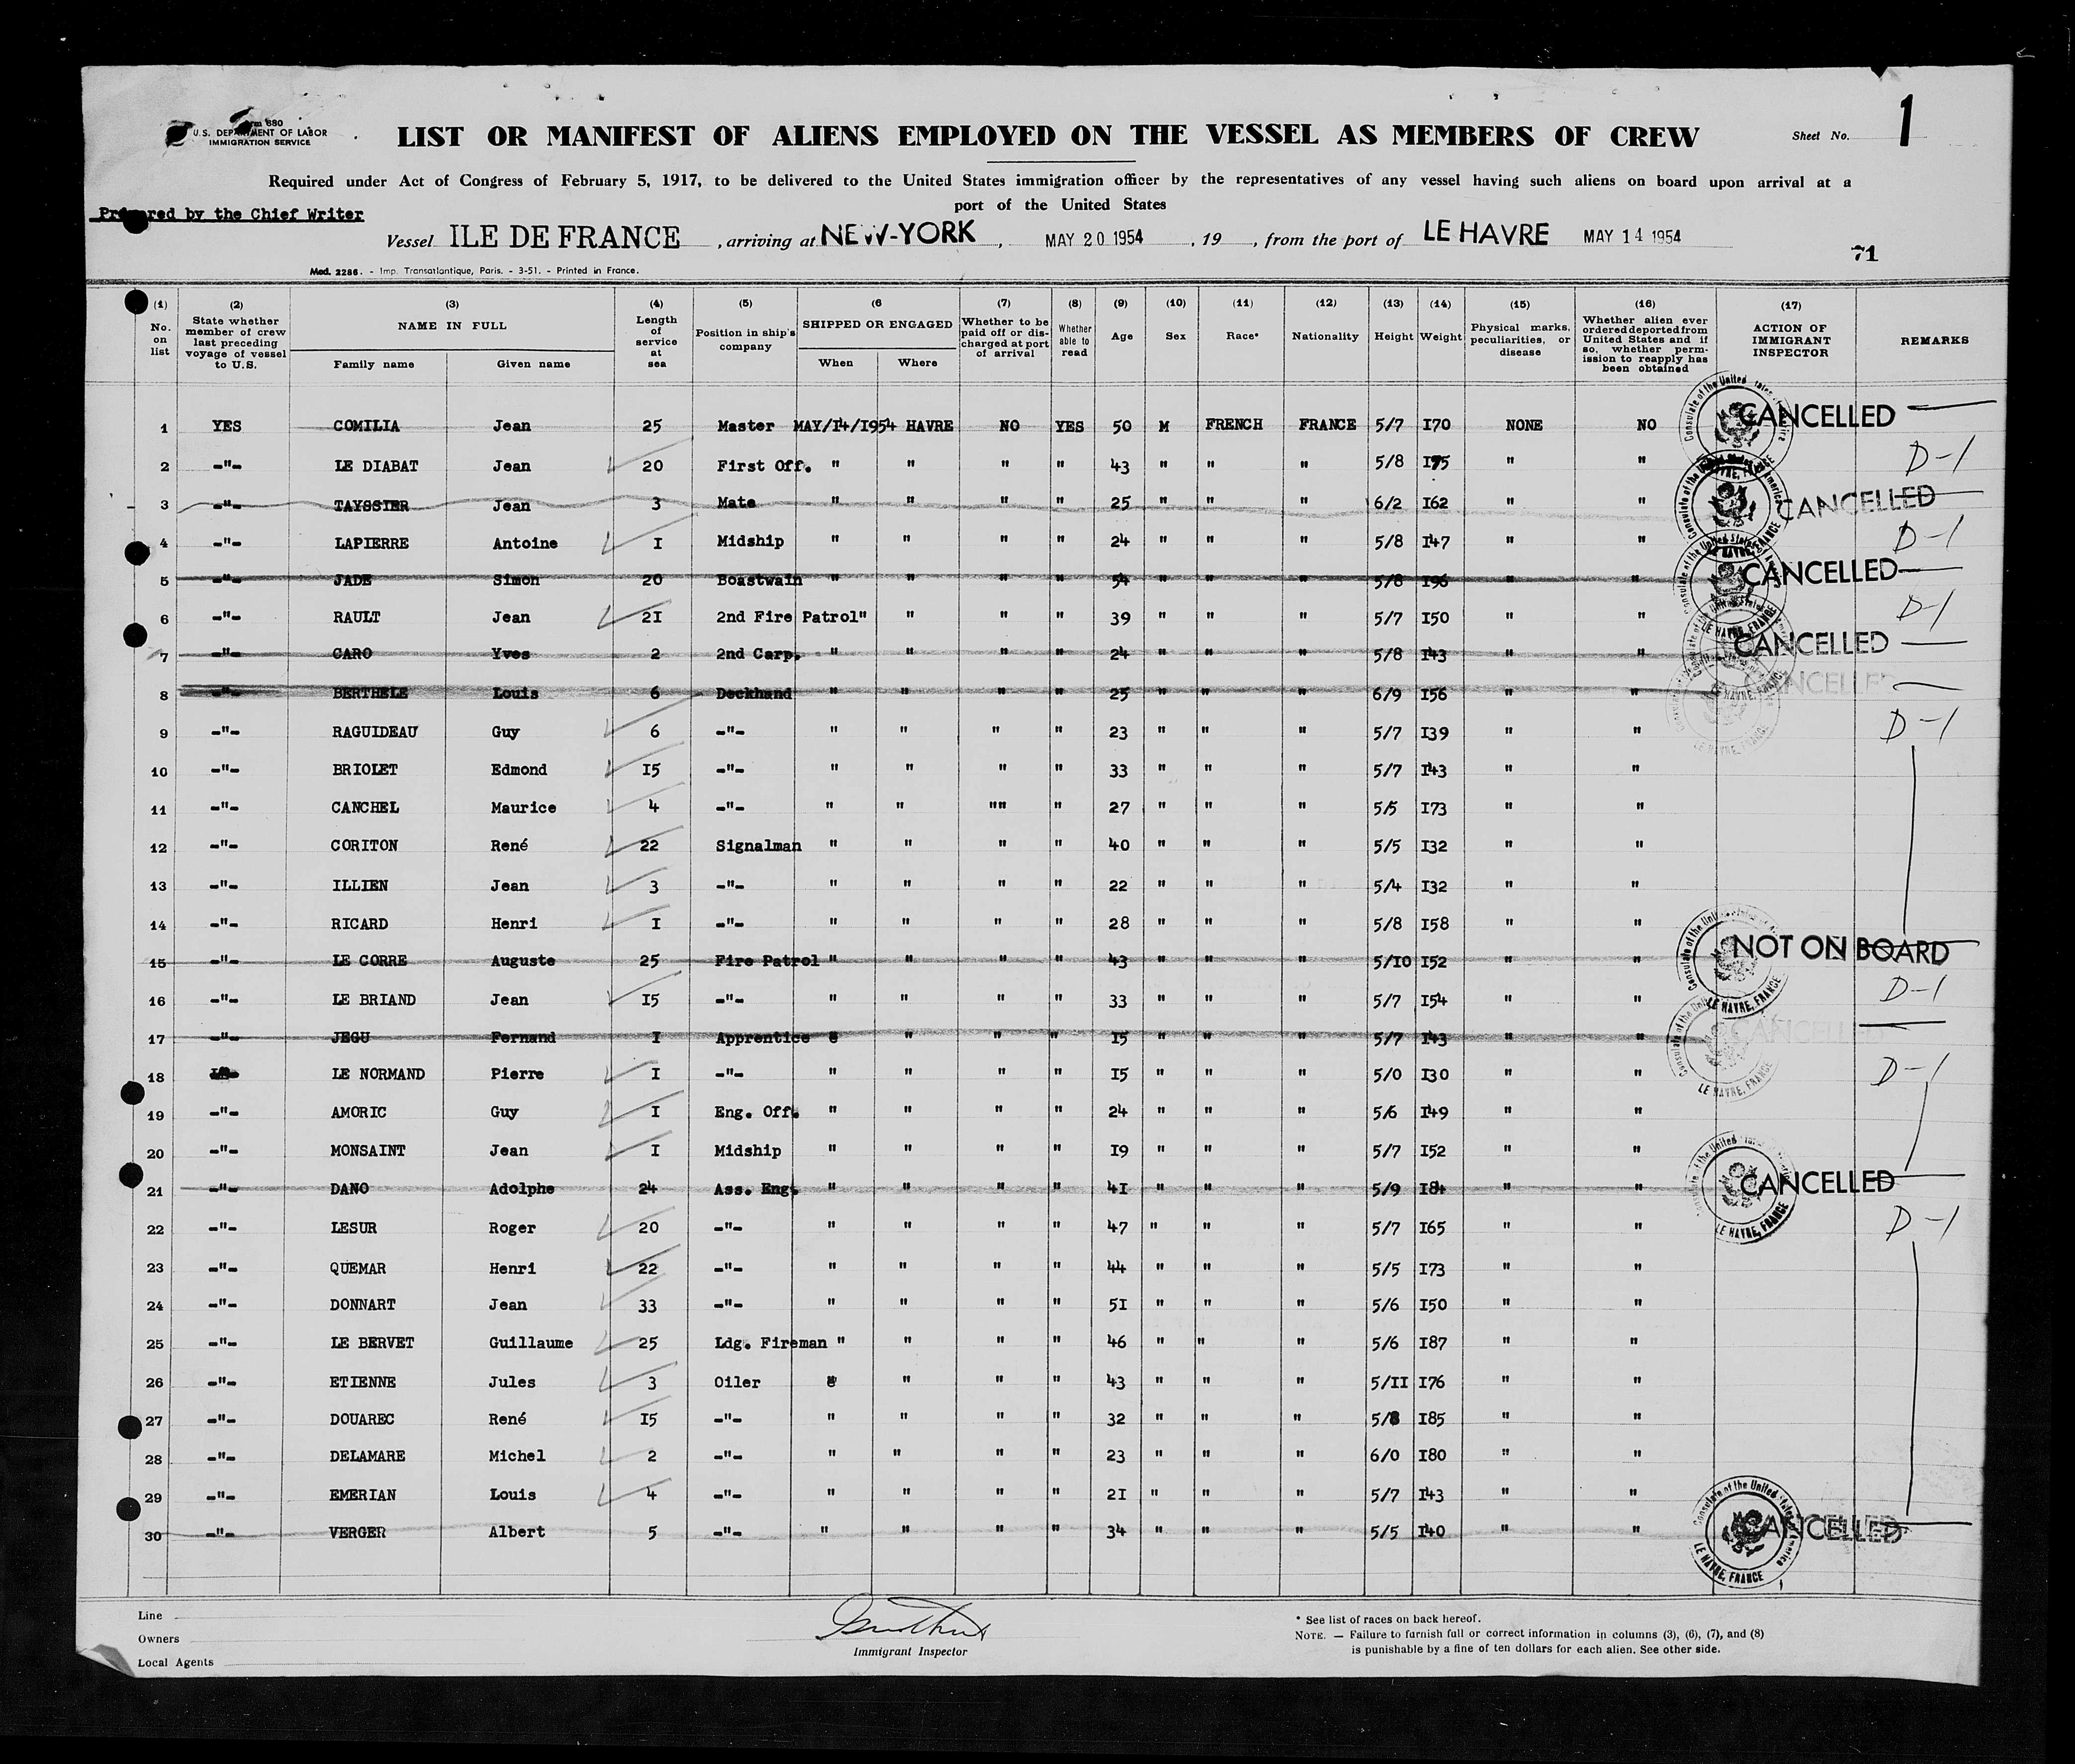 Form 680
U.S. DEPARTMENT OF LABOR
IMMIGRATION SERVICE
LIST OR MANIFEST OF ALIENS EMPLOYED ON THE VESSEL AS MEMBERS OF CREW
Sheet No. 1
Required under Act of Congress of February 5, 1917, to be delivered to the United States immigration officer by the representatives of any vessel having such aliens on board upon arrival at a
port of the United States
Prepared by the Chief Writer
Vessel ILE DE FRANCE , arriving at NEW-YORK , MAY 20 1954 , 19 , from the port of LE HAVRE MAY 14 1954
71
Mod. 2286. - Imp. Transatlantique, Paris. - 3-51. - Printed in France.
(1) No. on list (2) State whether member of crew last preceding voyage of vessel to U.S. (3) NAME IN FULL Family name Given name (4) Length of service at sea (5) Position in ship's company (6 SHIPPED OR ENGAGED When Where (7) Whether to be paid off or discharged at port of arrival (8) Whether able to read (9) Age (10) Sex (11) Race* (12) Nationality (13) Height (14) Weight (15) Physical marks, peculiarities, or disease (16) Whether alien ever ordered deported from United States and if so, whether permission to reapply has been obtained (17) ACTION OF IMMIGRANT INSPECTOR REMARKS
1 YES COMILIA Jean 25 Master MAY/I4/I954 HAVRE NO YES 50 M FRENCH FRANCE 5/7 I70 NONE NO CANCELLED
2 -"- LE DIABAT Jean 20 First Off. " " " " 43 " " " 5/8 I75 " " D-1
3 -"- TAYSSIER Jean 3 Mate " " " " 25 " " " 6/2 I62 " " CANCELLED
4 -"- LAPIERRE Antoine I Midship " " " " 24 " " " 5/8 I47 " " D-1
5 -"- JADE Simon 20 Boastwain " " " " 54 " " " 5/8 I96 " " CANCELLED
6 -"- RAULT Jean 2I 2nd Fire Patrol" " " " 39 " " " 5/7 I50 " " D-1
7 -"- CARO Yves 2 2nd Carp. " " " " 24 " " " 5/8 I43 " " CANCELLED
8 -"- BERTHELE Louis 6 Deckhand " " " " 25 " " " 6/9 I56 " " CANCELLED
9 -"- RAGUIDEAU Guy 6 -"- " " " " 23 " " " 5/7 I39 " " D-1
10 -"- BRIOLET Edmond I5 -"- " " " " 33 " " " 5/7 I43 " "
11 -"- CANCHEL Maurice 4 -"- " " "" " 27 " " " 5/5 I73 " "
12 -"- CORITON René 22 Signalman " " " " 40 " " " 5/5 I32 " "
13 -"- ILLIEN Jean 3 -"- " " " " 22 " " " 5/4 I32 " "
14 -"- RICARD Henri I -"- " " " " 28 " " " 5/8 I58 " "
15 -"- LE CORRE Auguste 25 Fire Patrol " " " " 43 " " " 5/I0 I52 " " NOT ON BOARD
16 -"- LE BRIAND Jean I5 -"- " " " " 33 " " " 5/7 I54 " " D-1
17 -"- JEGU Fernand I Apprentice " " " I5 " " " 5/7 I43 " " CANCELLED
18 LE NORMAND Pierre I -"- " " " " I5 " " " 5/0 I30 " " D-1
19 -"- AMORIC Guy I Eng. Off. " " " " 24 " " " 5/6 I49 " "
20 -"- MONSAINT Jean I Midship " " " " I9 " " " 5/7 I52 " "
21 -"- DANO Adolphe 24 Ass. Eng. " " " " 4I " " " 5/9 I84 " " CANCELLED
22 -"- LESUR Roger 20 -"- " " " " 47 " " " 5/7 I65 " " D-1
23 -"- QUEMAR Henri 22 -"- " " " " 44 " " " 5/5 I73 " "
24 -"- DONNART Jean 33 -"- " " " " 5I " " " 5/6 I50 " "
25 -"- LE BERVET Guillaume 25 Ldg. Fireman " " " " 46 " " " 5/6 I87 " "
26 -"- ETIENNE Jules 3 Oiler " " " " 43 " " " 5/II I76 " "
27 -"- DOUAREC René I5 -"- " " " " 32 " " " 5/8 I85 " "
28 -"- DELAMARE Michel 2 -"- " " " " 23 " " " 6/0 I80 " "
29 -"- EMERIAN Louis 4 -"- " " " " 2I " " " 5/7 I43 " "
30 -"- VERGER Albert 5 -"- " " " " 34 " " " 5/5 I40 " " CANCELLED
Consulate of the United States of America
LE HAVRE, FRANCE
Line
Owners
Local Agents
Immigrant Inspector
* See list of races on back hereof.
NOTE. — Failure to furnish full or correct information in columns (3), (6), (7), and (8)
is punishable by a fine of ten dollars for each alien. See other side.